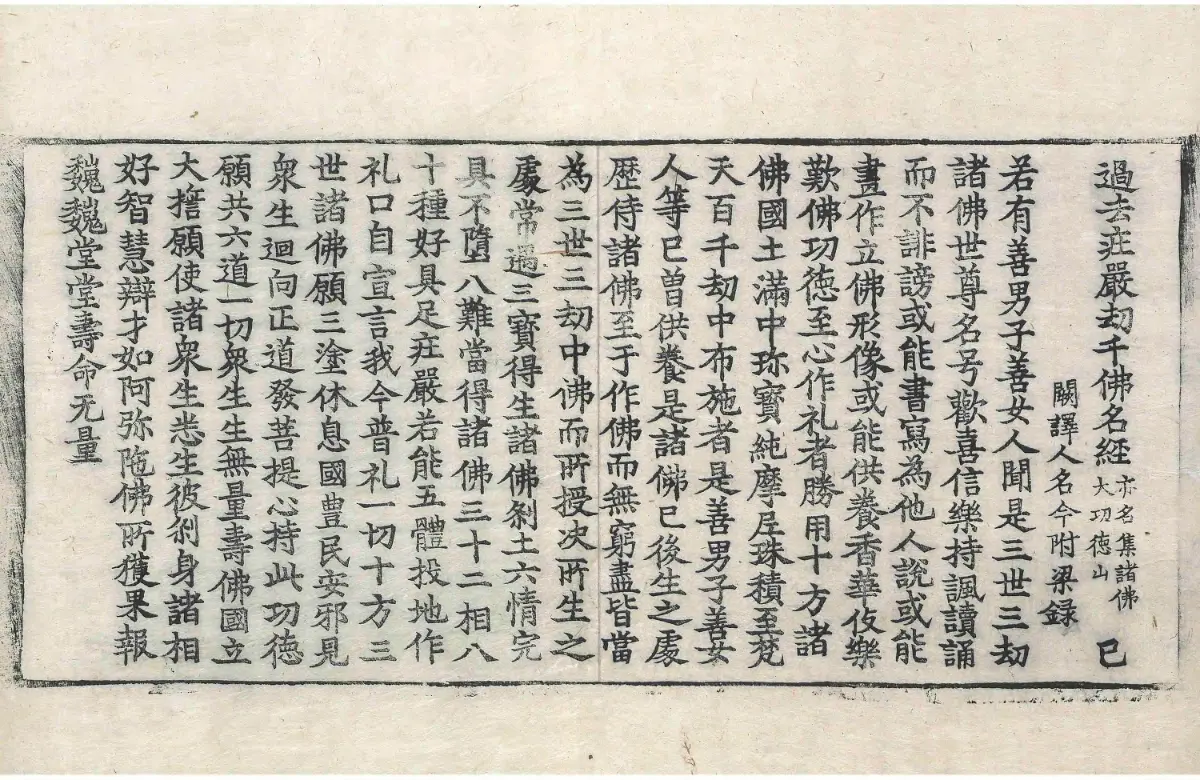 過去疘嚴劫千佛名經 亦名集諸佛大功德山 已
闕譯人名今附梁録
若有善男子善女人聞是三世三劫
諸佛世尊名号歡喜信樂持諷讀誦
而不誹謗或能書寫為他人說或能
畫作立佛形像或能供養香華伎樂
歎佛功德至心作礼者勝用十方諸
佛國土滿中珎寶純摩尼珠積至梵
天百千劫中布施者是善男子善女
人等已曽供養是諸佛已後生之處
歷侍諸佛至于作佛而無窮盡皆當
為三世三劫中佛而所授决所生之
處常遇三寶得生諸佛剎土六情完
具不墮八難當得諸佛三十二相八
十種好具足疘嚴若能五體投地作
礼口自宣言我今普礼一切十方三
世諸佛願三塗休息國豊民安邪見
衆生迴向正道發菩提心持此功德
願共六道一切衆生生無量壽佛國立
大擔願使諸衆生悉生彼剎身諸相
好智慧辯才如阿弥陁佛所獲果報
巍巍堂堂壽命无量